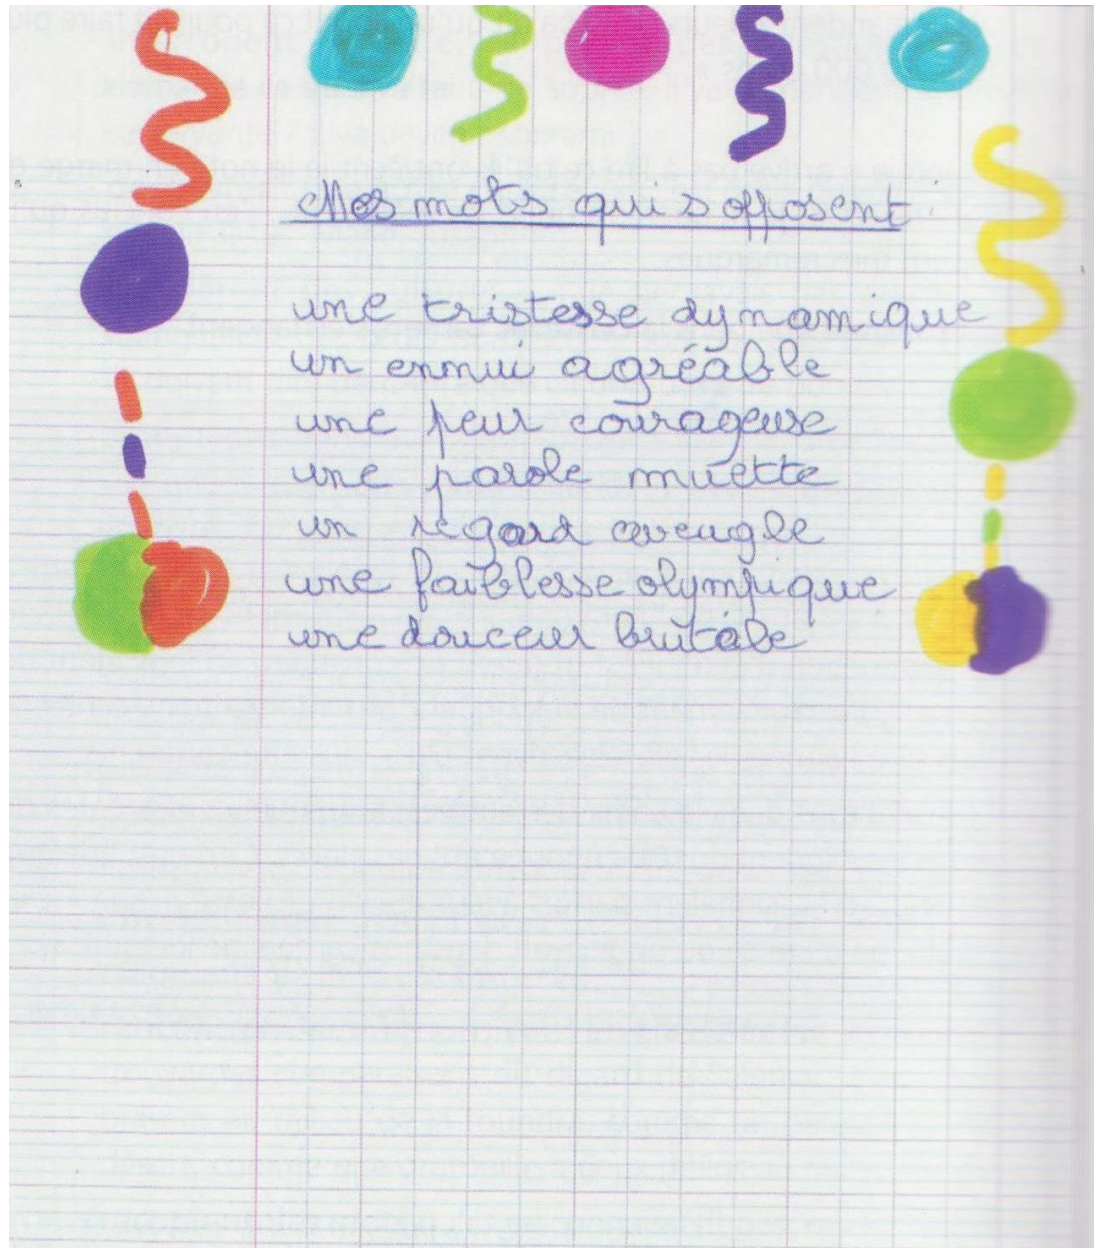 Mes mots qui s opposent
une tristesse dynamique
un ennui agréable
une peur courageuse
une parole muette
un regard aveugle
une faiblesse olympique
une douceur brutale